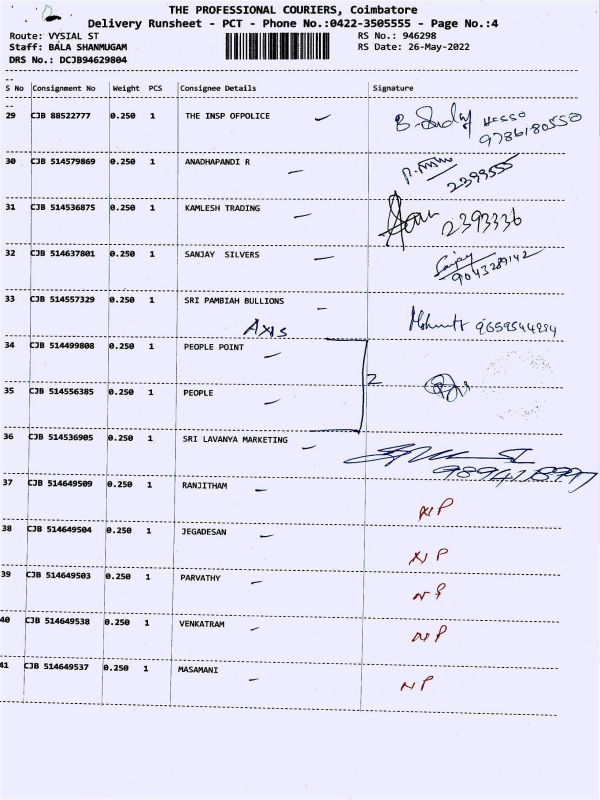 2
THE PROFESSIONAL COURIERS, Coimbatore
Delivery Runsheet - PCT - Phone No.:0422-3505555 - Page No.:4
Route: VYSIAL ST RS No.: 946298
Staff: BALA SHANMUGAM RS Date: 26-May-2022
DRS No.: DCJB94629804
S No Consignment No Weight PCS Consignee Details Signature
29 CJB 88522777 0.250 1 THE INSP OFPOLICE
9786180550
30 CJB 514579869 0.250 1 ANADHAPANDI R
2393555
31 CJB 514536875 0.250 1 KAMLESH TRADING 2393336
32 CJB 514637801 0.250 1 SANJAY SILVERS Sanjay
9043289142
33 CJB 514557329 0.250 1 SRI PAMBIAH BULLIONS
AXIS 9659544284
34 CJB 514499808 0.250 1 PEOPLE POINT
2
35 CJB 514556385 0.250 1 PEOPLE
36 CJB 514536905 0.250 1 SRI LAVANYA MARKETING
37 CJB 514649509 0.250 1 RANJITHAM NP
38 CJB 514649504 0.250 1 JEGADESAN NP
39 CJB 514649503 0.250 1 PARVATHY NP
40 CJB 514649538 0.250 1 VENKATRAM NP
41 CJB 514649537 0.250 1 MASAMANI NP